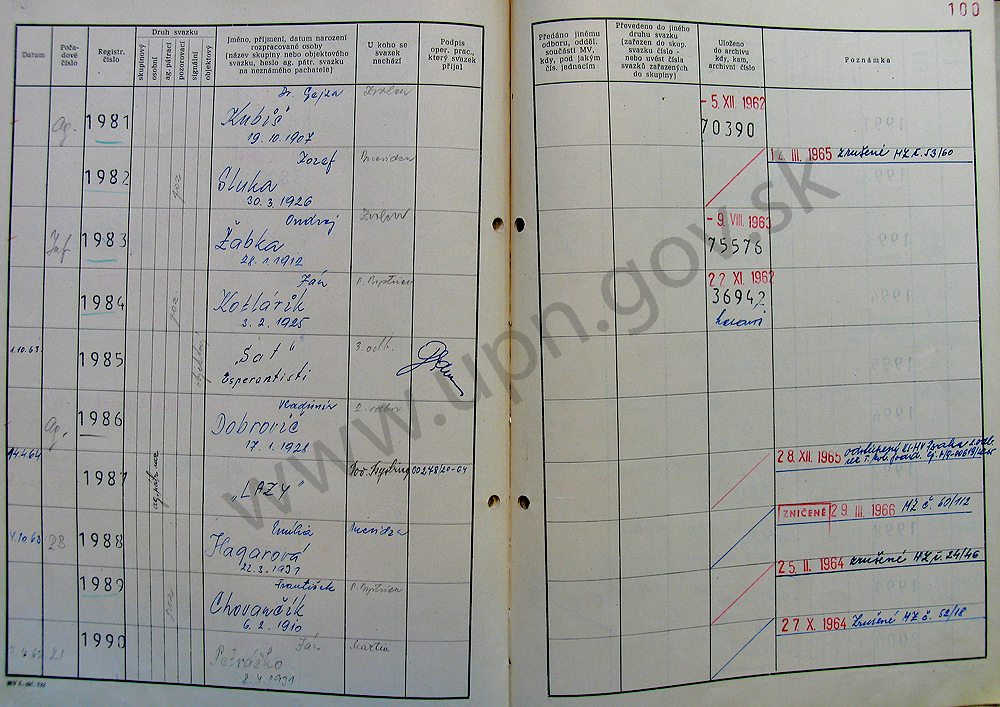 100
Datum
Pořadové číslo
Registr. číslo
Druh svazku
skupinový
osobní
ag. pátrací
pozorovací
signální
objektový
Jméno, příjmení, datum narození
rozpracované osoby
(název skupiny nebo objektového
svazku, heslo ag. pátr. svazku
na neznámého pachatele)
U koho se
svazek
nachází
Podpis
oper. prac.,
který svazek
přijal
Předáno jinému
odboru, odděl.
součásti MV,
kdy, pod jakým
čís. jednacím
Převedeno do jiného
druhu svazku
(zařazen do skup.
svazku číslo -
nebo uvést čísla
svazků zařazených
do skupiny)
Uloženo
do archivu
kdy, kam,
archivní číslo
Poznámka
Ag. 1981
Dr. Gejza
Kubiš
19.10.1907
Zvolen
- 5. XII. 1962
70390
1982
poz
Jozef
Sluka
30.3.1926
Prievidza
12. III. 1965 Zrušené MZ č. 53/60
Inf 1983
Ondrej
Žabka
28.1.1912
Zvolen
- 9. VIII. 1963
75576
1984
poz.
Ján
Kotlárik
3.2.1925
B. Bystrica
22 XI. 1962
36942
1.10.63. 1985
objektový
"Šat"
Esperantisti
3. odb.
Ag. 1986
Vladimír
Dobrovic
17.1.1923
2. odbor
14.4.64 1987
ag. pátr.
"LAZY"
00278/20-64
28. XII. 1965
1988
Emília
Hagarová
22.3.1931
Prievidza
ZNIČENÉ 29. III. 1966 MZ č. 60/112
1989
poz
František
Chovančík
6.2.1910
B. Bystrica
25. II. 1964 Zrušené MZ č. 24/46
1990
Ján
Petráško
2.4.1931
Martin
27. X. 1964 Zrušené MZ č. 52/18
www.upn.gov.sk